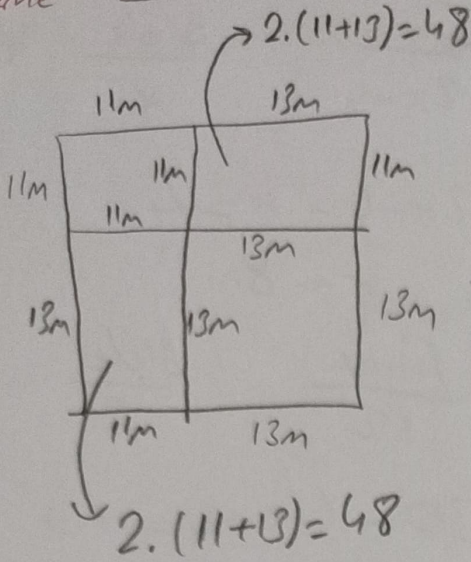 2.(11+13)=48
11m 13m
11m 11m 11m
11m 13m
13m 13m 13m
11m 13m
2.(11+13)=48